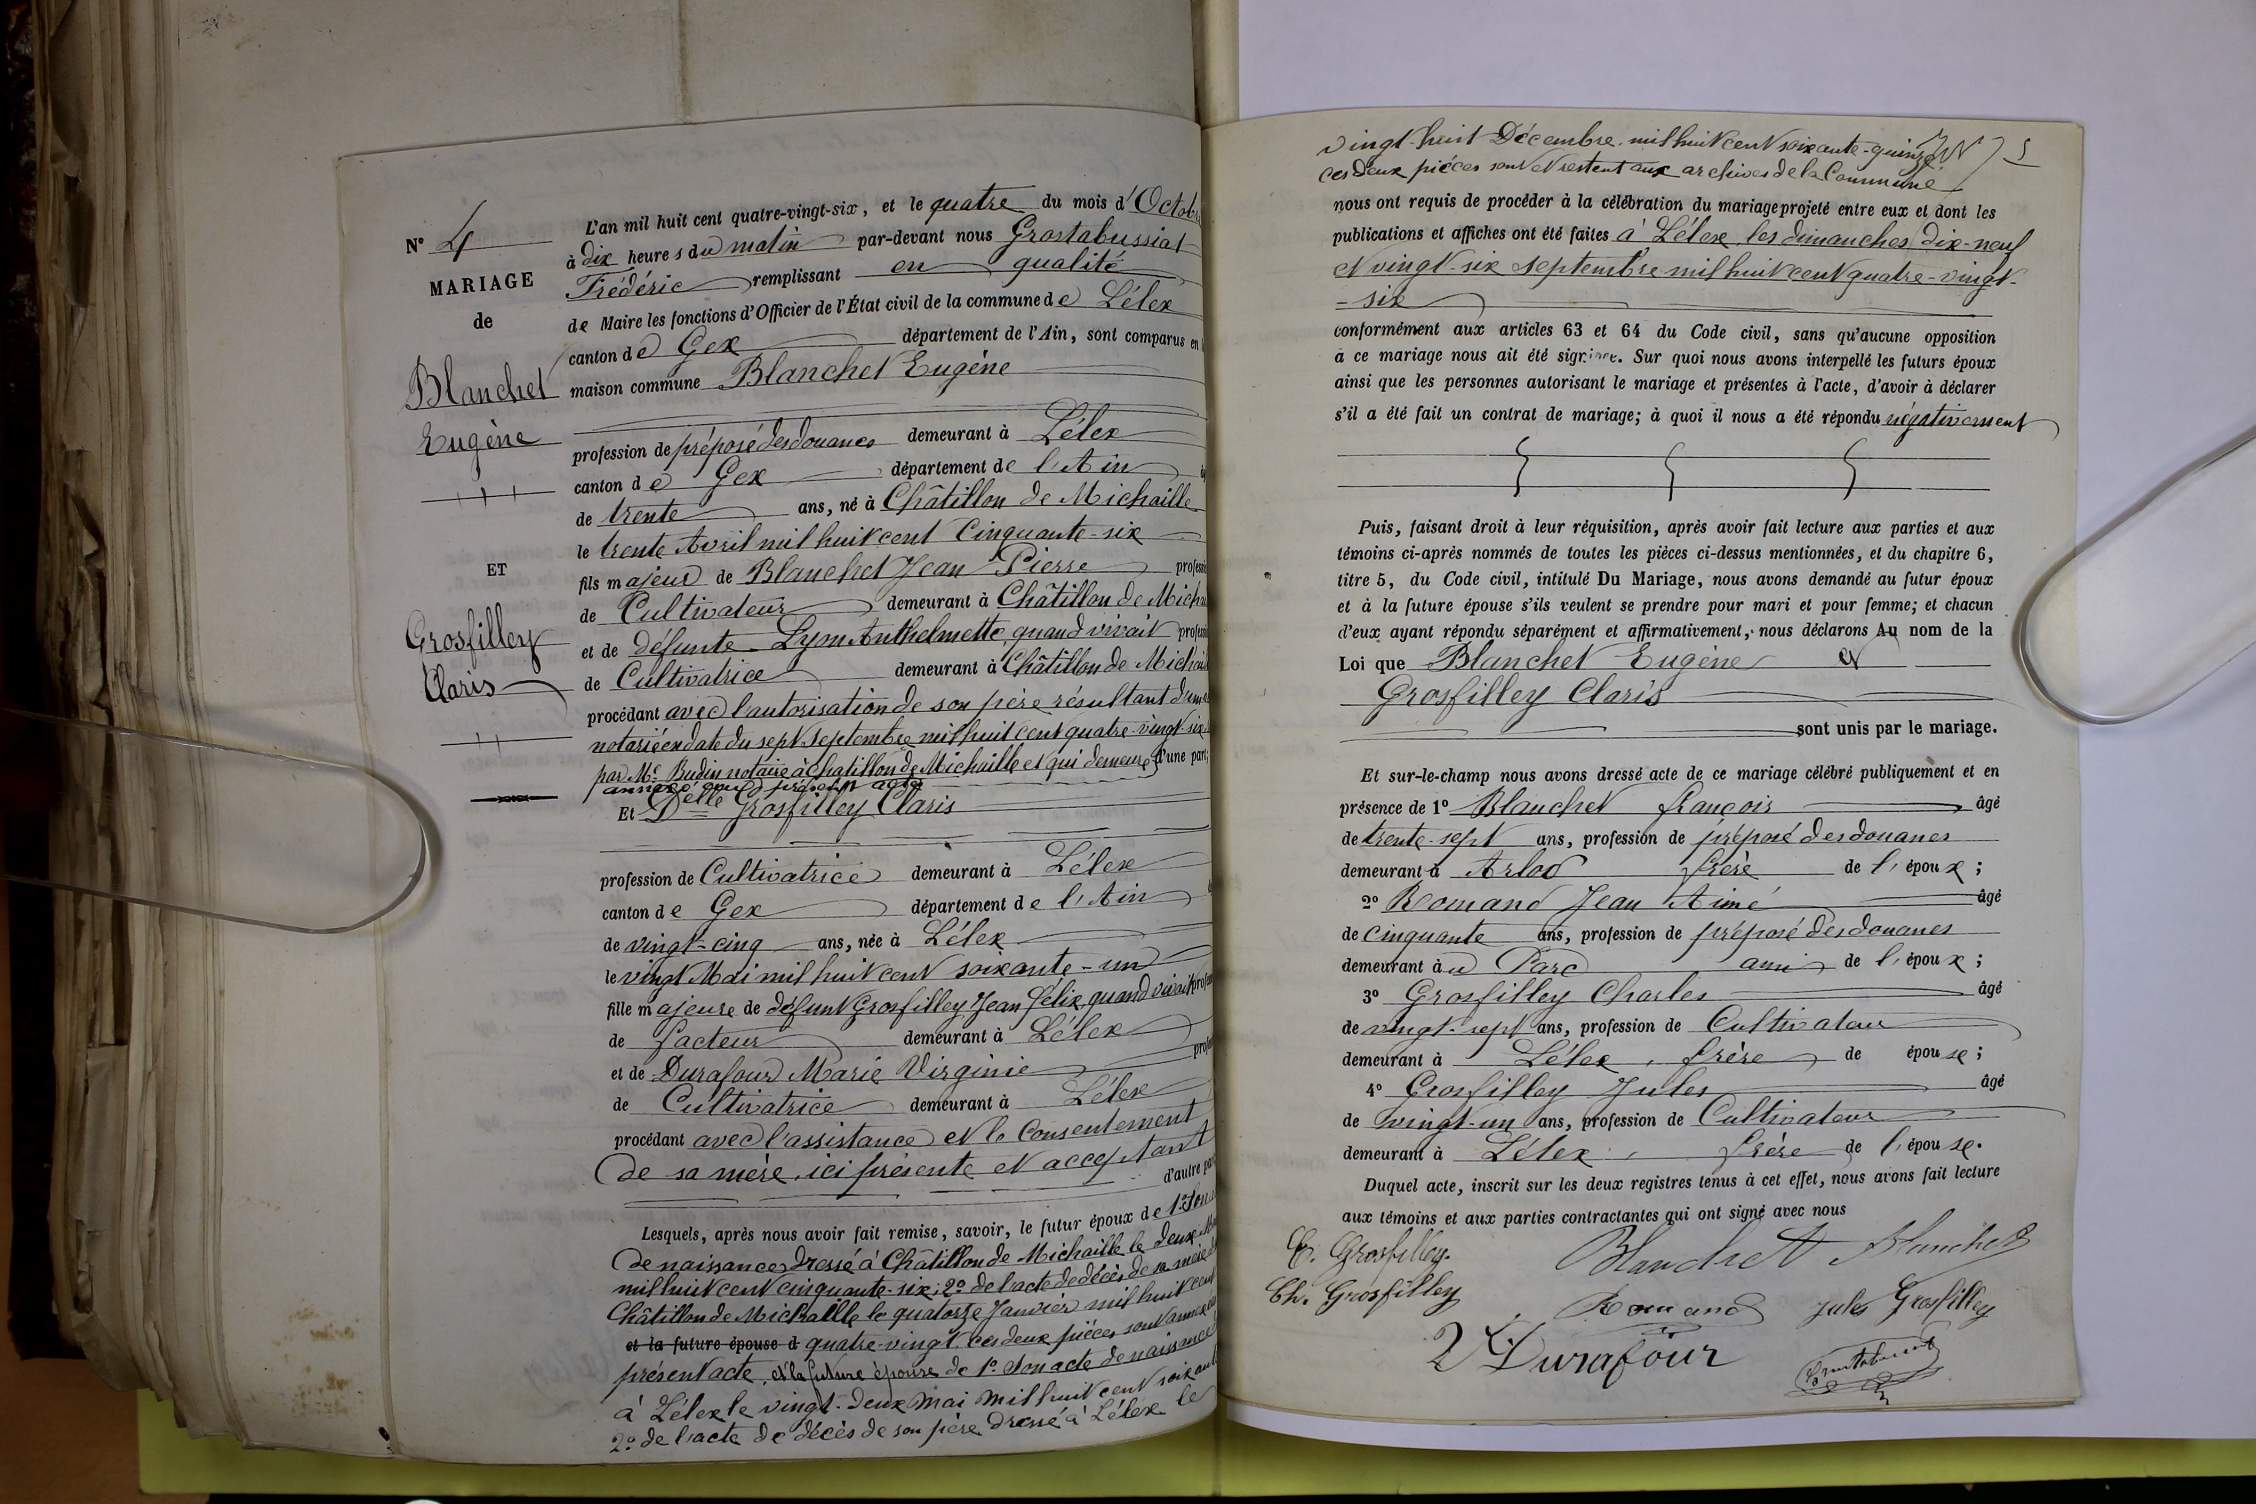 N° 4
MARIAGE
de
Blanchet
Eugène
ET
Grosfilley
Claris
L'an mil huit cent quatre-vingt-six, et le quatre du mois d'Octob
à dix heures du matin par-devant nous Grostabussiat
Frédéric remplissant en qualité
de Maire les fonctions d'Officier de l'État civil de la commune de Lélex
canton de Gex département de l'Ain, sont comparus en
maison commune Blanchet Eugène
profession de préposé des douanes demeurant à Lélex
canton de Gex département de l'Ain
de trente ans, né à Châtillon de Michaille
le trente Avril mil huit cent Cinquante-six
fils majeur de Blanchet Jean Pierre profess
de Cultivateur demeurant à Châtillon de Micha
et de défunte Lyon Anthelmette quand vivait profess
de Cultivatrice demeurant à Châtillon de Michai
procédant avec l'autorisation de son père résultant d'un
notarié en date du sept Septembre mil huit cent quatre-vingt-six
par Me Budin notaire à Chatillon de Michaille et qui demeure d'une part;
annexé au présent acte
Et Delle Grosfilley Claris
profession de Cultivatrice demeurant à Lélex
canton de Gex département de l'Ain
de vingt-cinq ans, née à Lélex
le vingt Mai mil huit cent soixante-un
fille majeure de défunt Grosfilley Jean Félix, quand vivait prof
de facteur demeurant à Lélex
et de Durafour Marie Virginie prof
de Cultivatrice demeurant à Lélex
procédant avec l'assistance et le Consentement
de sa mère, ici présente et acceptant
d'autre pa
Lesquels, après nous avoir fait remise, savoir, le futur époux de 1° Son
de naissance dressé à Châtillon de Michaille le deux M
mil huit cent cinquante-six; 2° de l'acte de décès de sa mère
Châtillon de Michaille le quatorze Janvier mil huit cent
et la future épouse d quatre-vingt. ces deux pièces sont annex
présent acte, et la future épouse de 1° Son acte de naissance
à Lélex le vingt-deux mai mil huit cent soixante
2° de l'acte de décès de son père dressé à Lélex le
vingt-huit Décembre mil huit cent soixante-quinze
ces deux pièces sont et restent aux archives de la Commune
nous ont requis de procéder à la célébration du mariage projeté entre eux et dont les
publications et affiches ont été faites à Lélex les dimanches dix-neuf
et vingt-six septembre mil huit cent quatre-vingt-
-six
conformément aux articles 63 et 64 du Code civil, sans qu'aucune opposition
à ce mariage nous ait été signifiée. Sur quoi nous avons interpellé les futurs époux
ainsi que les personnes autorisant le mariage et présentes à l'acte, d'avoir à déclarer
s'il a été fait un contrat de mariage; à quoi il nous a été répondu négativement
Puis, faisant droit à leur réquisition, après avoir fait lecture aux parties et aux
témoins ci-après nommés de toutes les pièces ci-dessus mentionnées, et du chapitre 6,
titre 5, du Code civil, intitulé Du Mariage, nous avons demandé au futur époux
et à la future épouse s'ils veulent se prendre pour mari et pour femme; et chacun
d'eux ayant répondu séparément et affirmativement, nous déclarons Au nom de la
Loi que Blanchet Eugène et
Grosfilley Claris
sont unis par le mariage.
Et sur-le-champ nous avons dressé acte de ce mariage célébré publiquement et en
présence de 1° Blanchet François âgé
de trente-sept ans, profession de préposé des douanes
demeurant à Arlod frère de l'époux;
2° Romand Jean Aimé âgé
de cinquante ans, profession de préposé des douanes
demeurant à u Parc ami de l'époux;
3° Grosfilley Charles âgé
de vingt-sept ans, profession de Cultivateur
demeurant à Lélex, frère de épouse;
4° Grosfilley Jules âgé
de vingt-un ans, profession de Cultivateur
demeurant à Lélex, frère de l'épouse.
Duquel acte, inscrit sur les deux registres tenus à cet effet, nous avons fait lecture
aux témoins et aux parties contractantes qui ont signé avec nous
C. Grosfilley. Blanchet Blanchet
Ch. Grosfilley Romand Jules Grosfilley
V Durafour